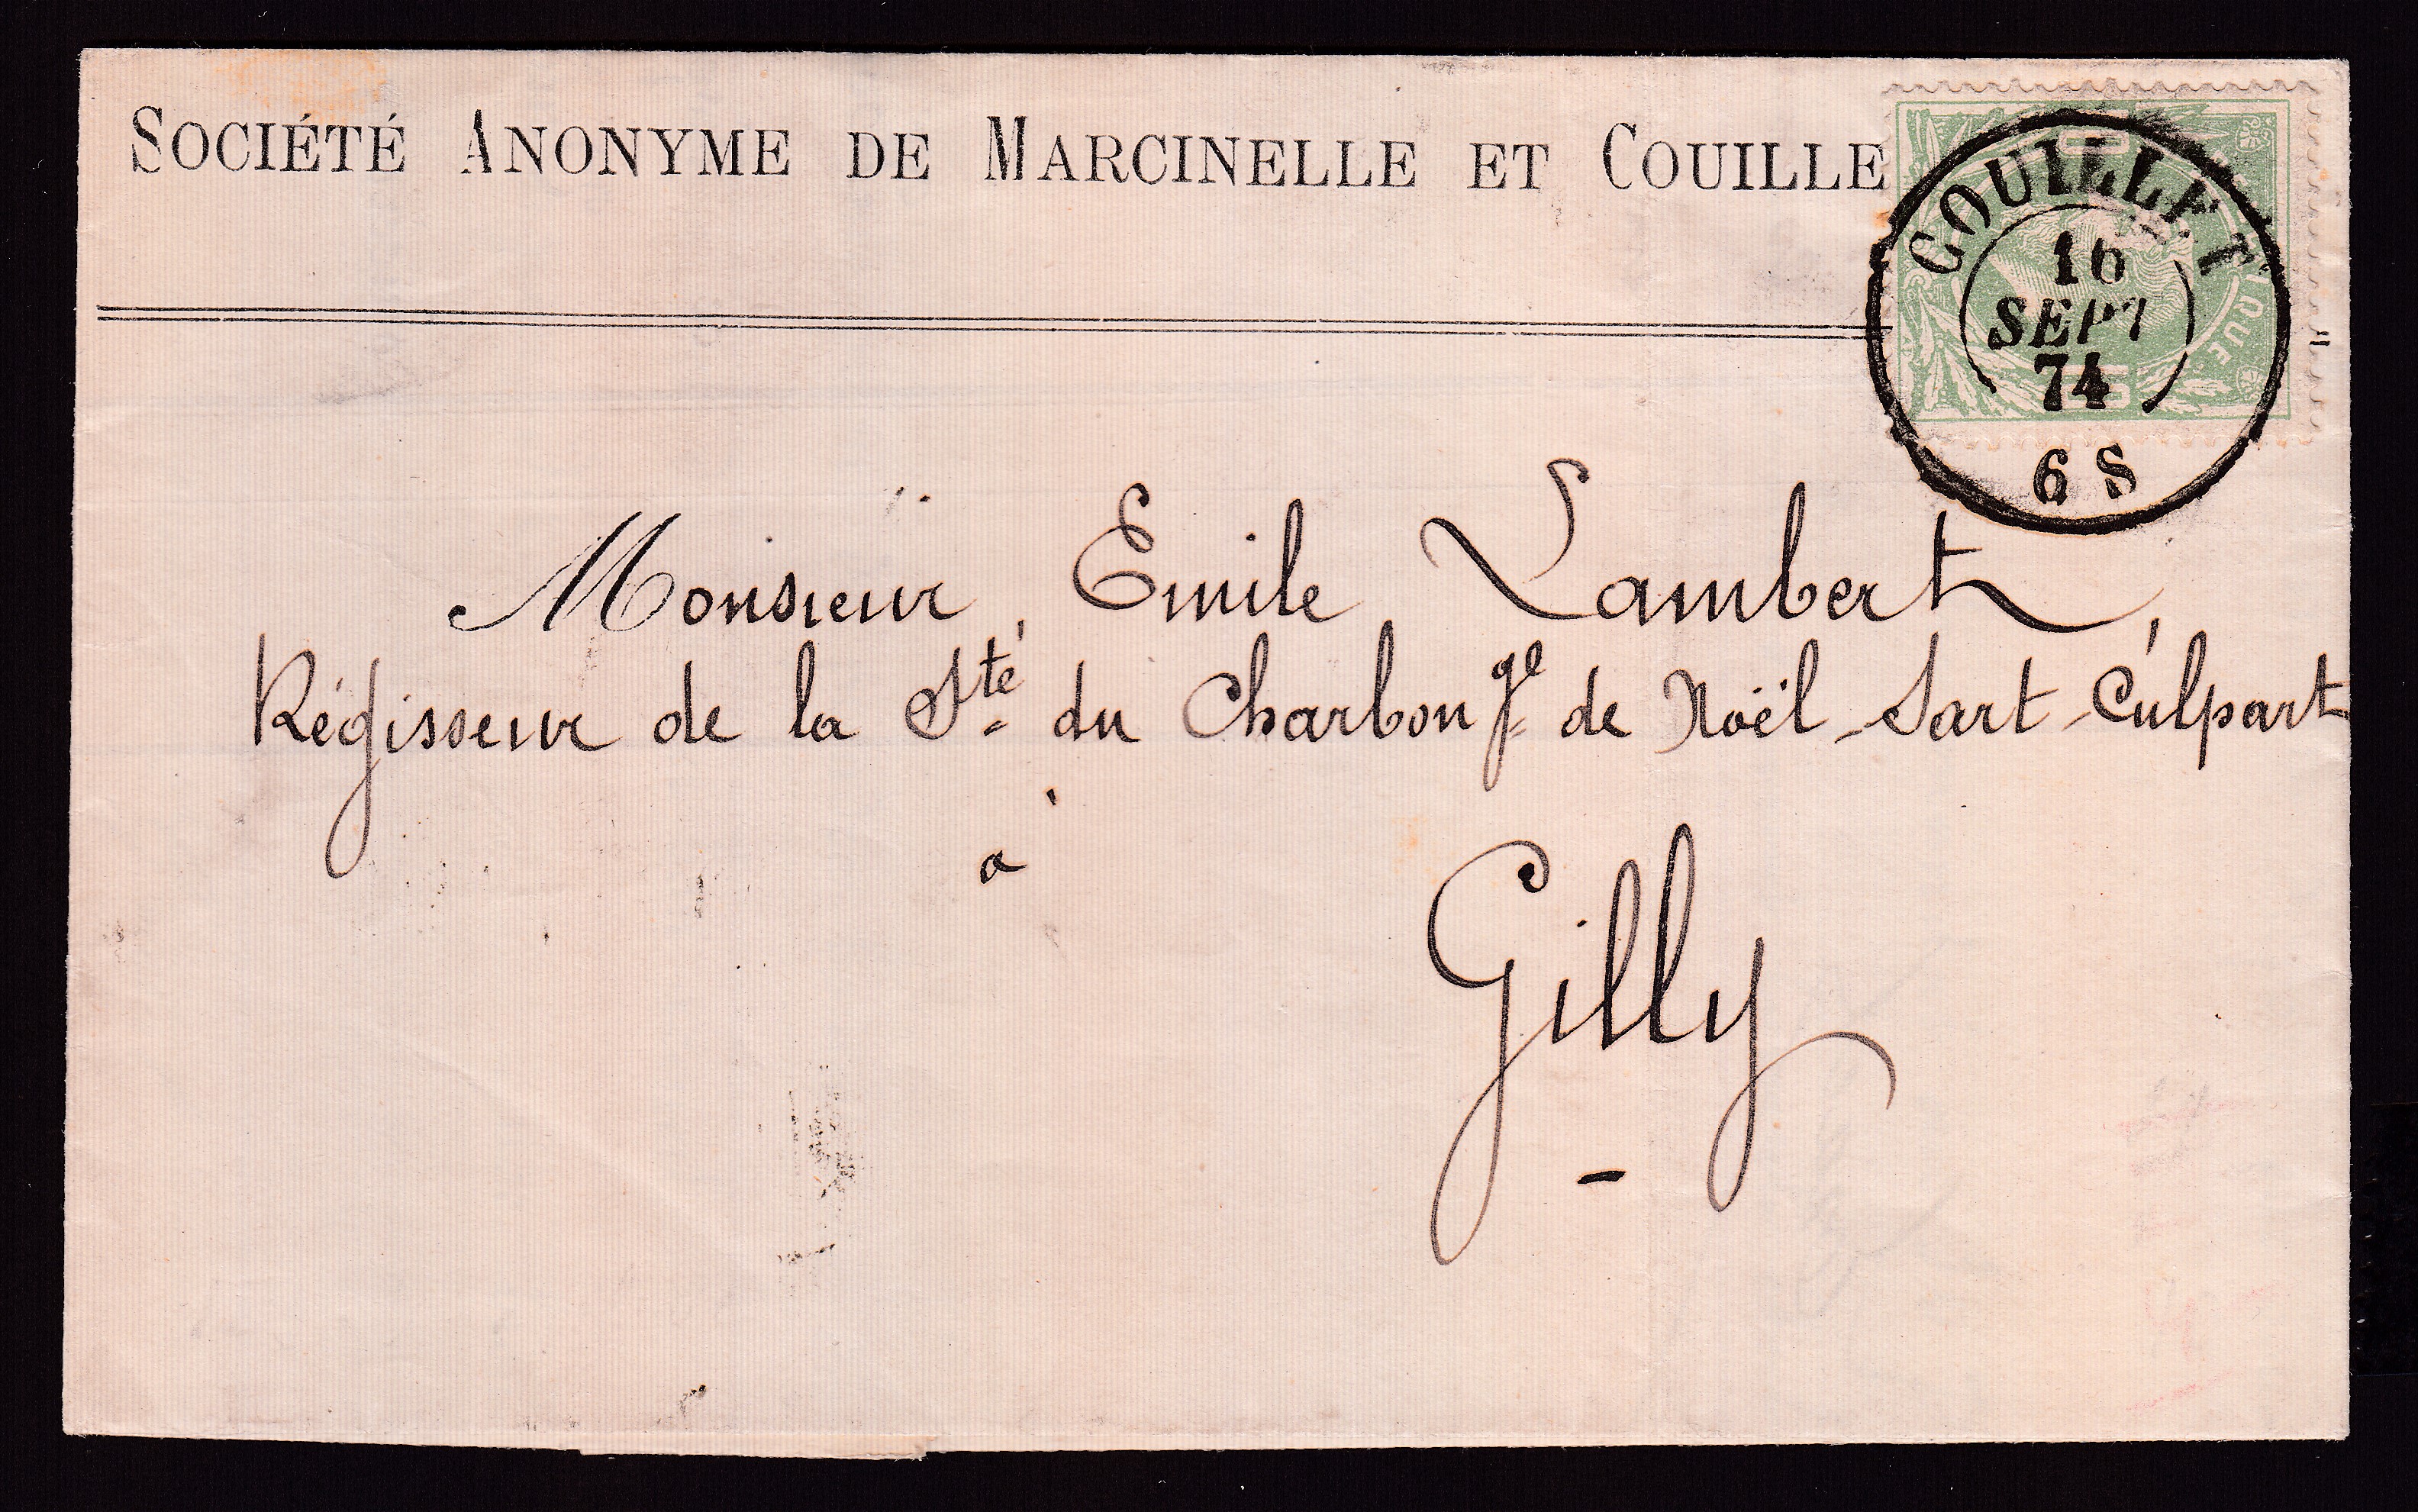 SOCIÉTÉ ANONYME DE MARCINELLE ET COUILLE
COUILLET
16
SEPT
74
6 S
Monsieur Emile Lambert,
Régisseur de la Sté du Charbonge de Noël-Sart-Culpart
à
Gilly